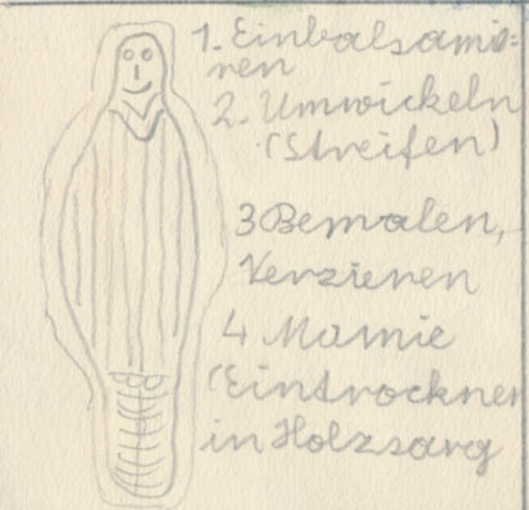 1. Einbalsami=
ren
2. Umwickeln
(Streifen)
3 Bemalen,
Verzieren
4 Mumie
(Eintrocknen
in Holzsarg